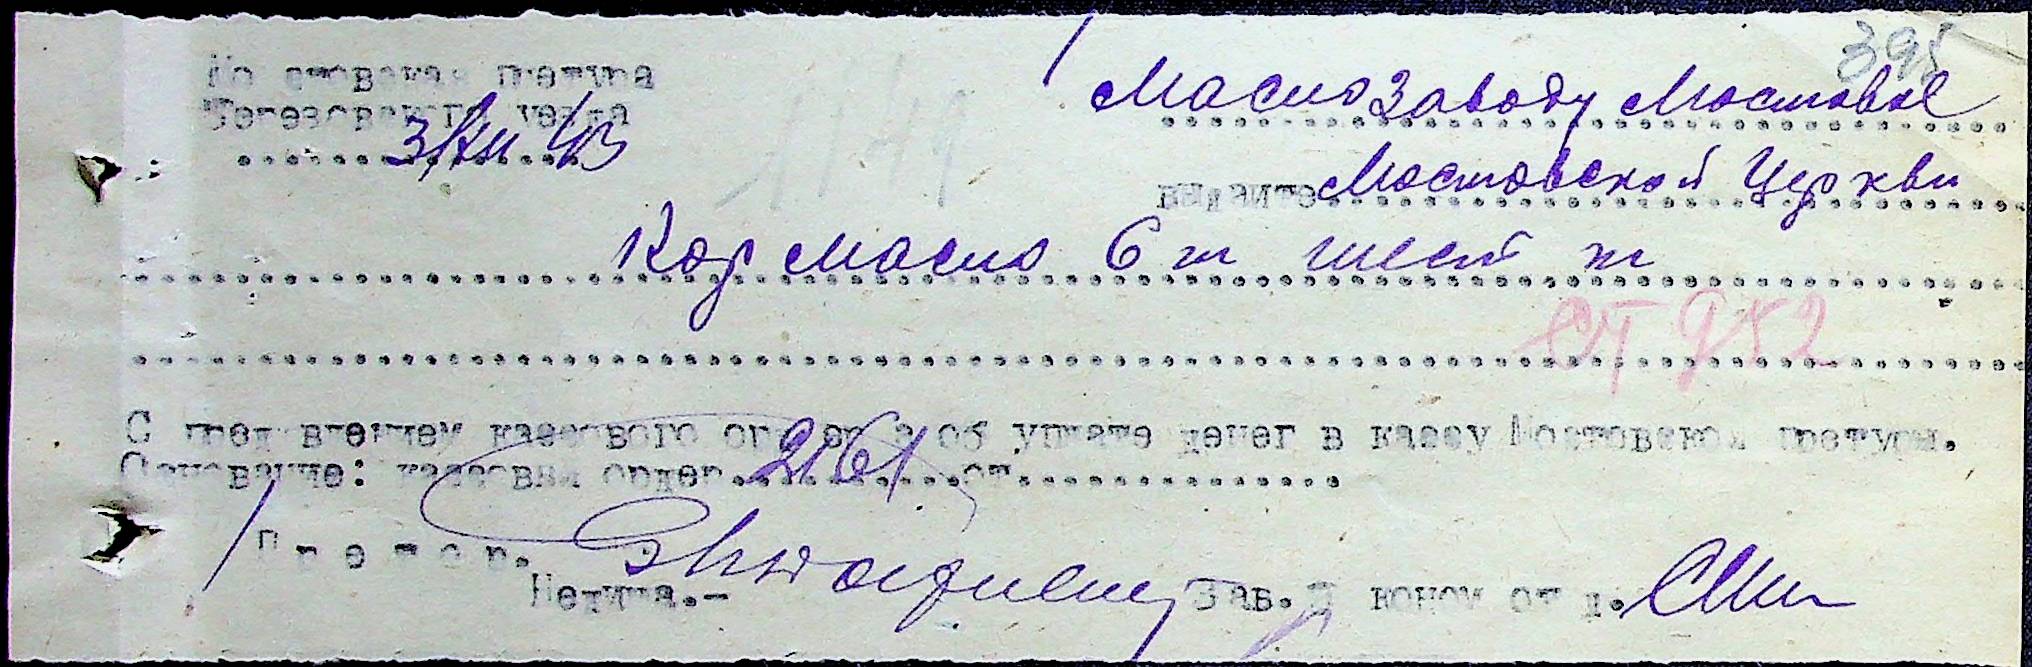 395
Мостовская претура
Березовского уезда
3/XII 43
Маслозаводу Мостовое
выдайте Мостовской Церкви
Кор масло 6 т шест т
ст 982
С пред влением кассового ордера об уплате денег в кассу Мостовской претуры.
Основание: кассовый ордер 2161 от
Претор.
Нетина.-
Зав. эконом от д.